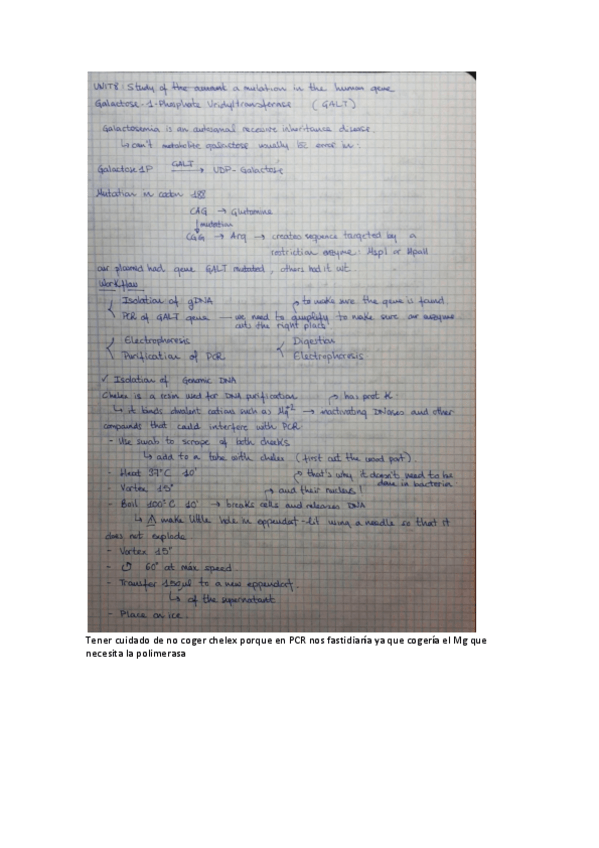 UNIT8: Study of the amount a mutation in the human gene
Galactose-1-Phosphate Uridyltransferase (GALT)
Galactosemia is an autosomal recessive inheritance disease
↳ can't metabolite galactose usually bc error in:
Galactose 1P GALT → UDP-Galactose
Mutation in codon 188
CAG → Glutamine
↓ mutation
CGG → Arg → creates sequence targeted by a
restriction enzyme: HspI or HpaII
our plasmid had gene GALT mutated, others had it wt.
Workflow
Isolation of gDNA → to make sure the gene is found.
PCR of GALT gene — we need to amplify to make sure our enzyme
cuts the right place
Electrophoresis Digestion
Purification of PCR Electrophoresis
✓ Isolation of Genomic DNA
Chelex is a resin used for DNA purification → has prot K
↳ it binds divalent cations such as Mg+2 → inactivating DNases and other
compounds that could interfere with PCR
- Use swab to scrape of both cheeks
↳ add to a tube with chelex (first cut the wood part).
- Heat 37°C 10' → that's why it doesn't need to be
done in bacteria
- Vortex 15" → and their nucleus!
- Boil 100°C 10' → breaks cells and releases DNA
↳ ⚠ make little hole in eppendorf-lid using a needle so that it
does not explode
- Vortex 15"
- ↺ 60" at máx speed
- Transfer 150µl to a new eppendorf.
↳ of the supernatant
- Place on ice.
Tener cuidado de no coger chelex porque en PCR nos fastidiaría ya que cogería el Mg que
necesita la polimerasa